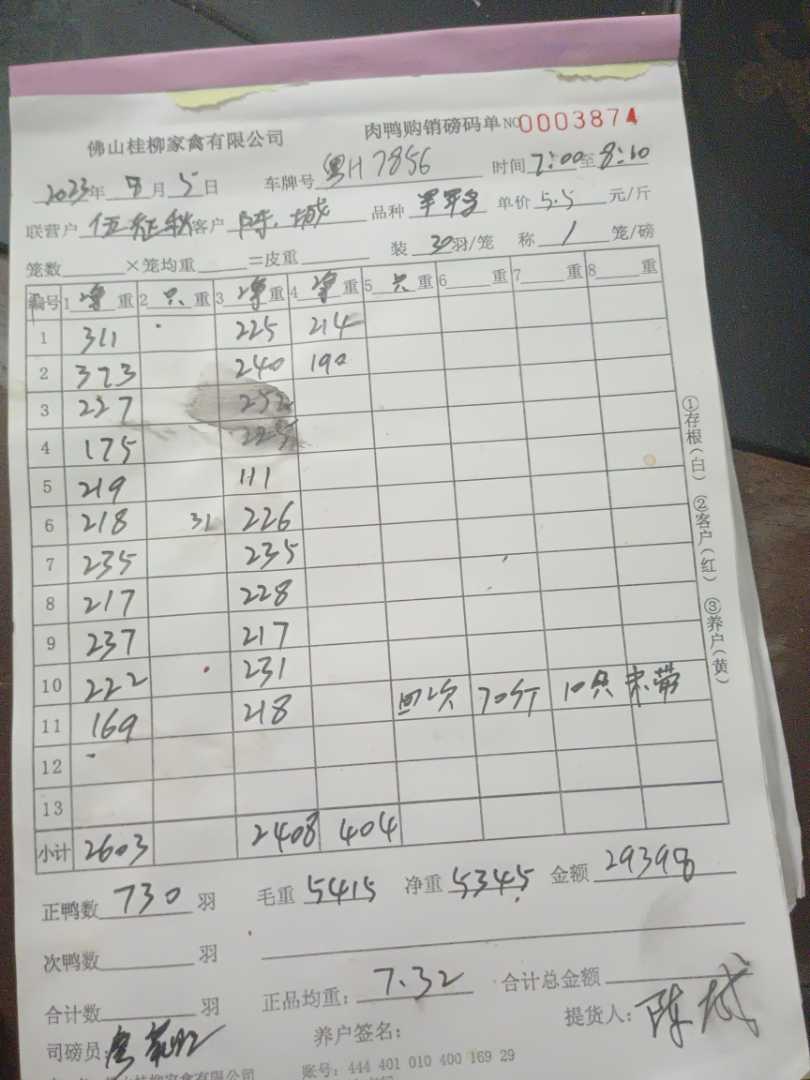 佛山桂柳家禽有限公司 肉鸭购销磅码单 NO 0003874
2023年 8月 5日 车牌号 粤H7856 时间 7:00至8:10
联营户 伍征秋 客户 陈城 品种 单价 5.5 元/斤
笼数 ×笼均重 =皮重 装 30羽/笼 称 1 笼/磅
编号 1 净重 2 只重 3 净重 4 净重 5 只重 6 重 7 重 8 重
1 311 225 214
2 373 240 190
3 227 252
4 175 225
5 219 111
6 218 31 226
7 235 235
8 217 228
9 237 217
10 222 231
11 169 218 70斤 10只 未带
12
13
小计 2603 2408 404
正鸭数 730 羽 毛重 5415 净重 5345 金额 29398
次鸭数 羽
合计数 羽 正品均重: 7.32 合计总金额
司磅员: 养户签名: 提货人: 陈城
佛山桂柳家禽有限公司 账号: 444 401 010 400 169 29
①存根(白) ②客户(红) ③养户(黄)